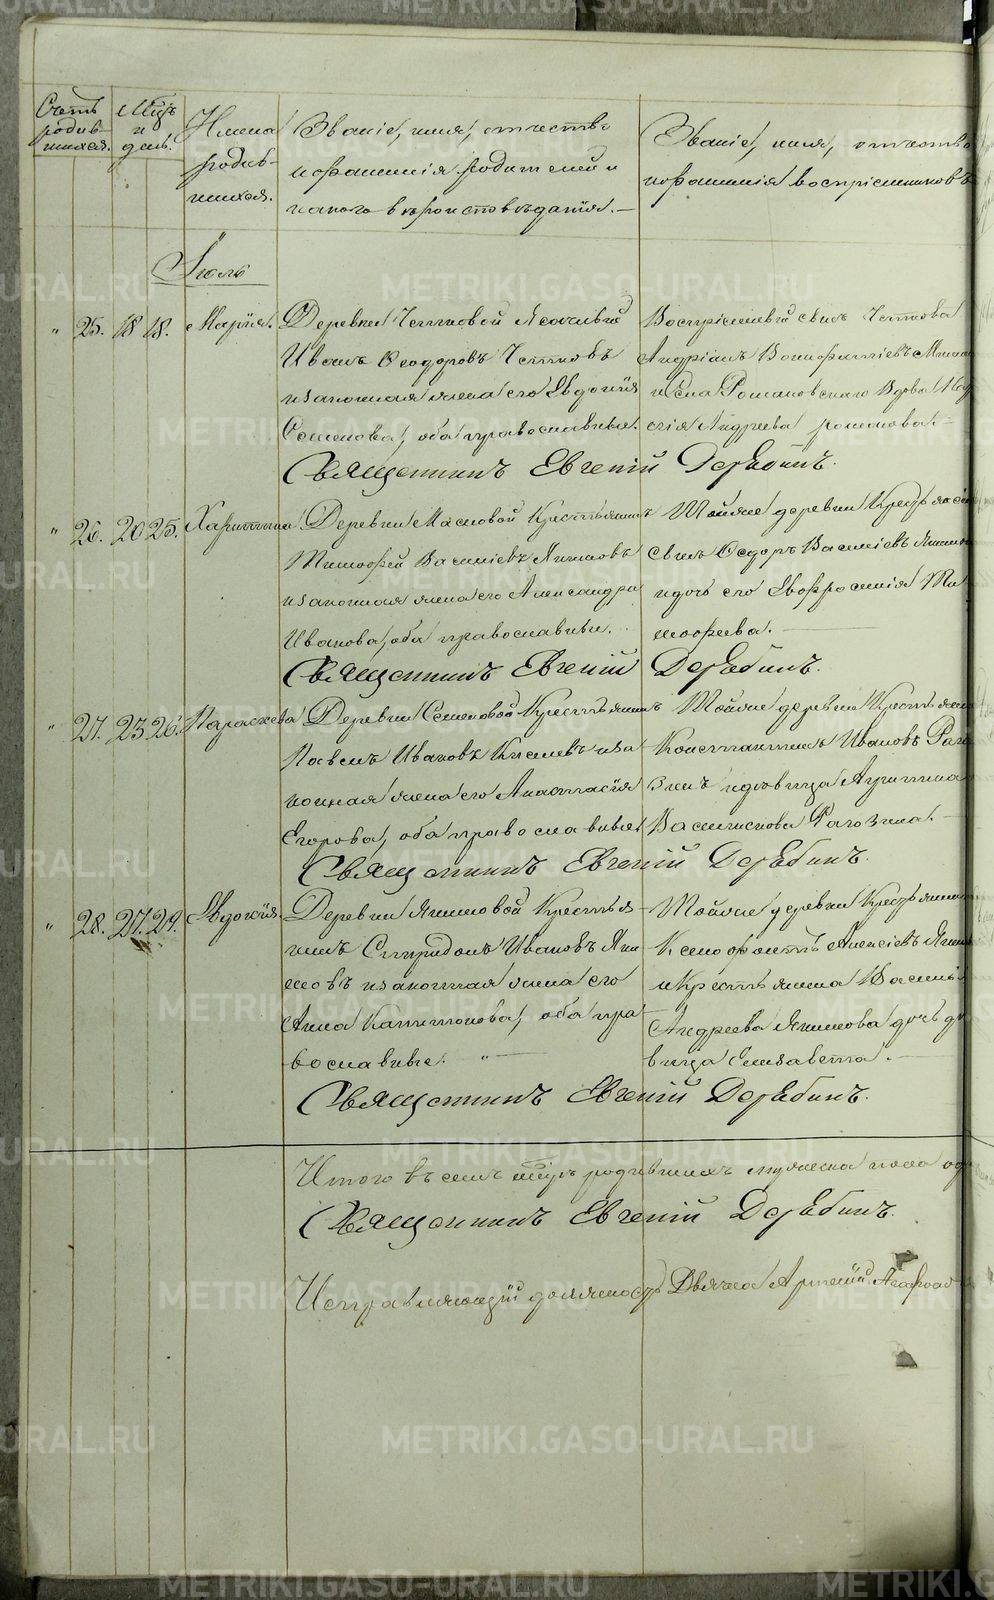 Счетъ родив-шихся.
Мѣцъ и день.
Имена родив-шихся.
Званіе, имя, отчество и фамилія родителей и какого вѣроисповѣданія.
Званіе, имя, отчество и фамилія воспріемниковъ
Іюль
25. 18 18. Марія.
Деревни Четковой Ясачный
Иванъ Ѳеодоровъ Четковъ
и законная жена его Евдокія
Семенова, оба православные.
Воспріемный сынъ Четкова
Андріанъ
и села Романовскаго Вдова
Андреева
Священникъ Евгеній Дерябинъ.
26. 20 25. Харитина
Деревни Масловой Крестьянинъ
Тимофей Василіевъ Якимовъ
и законная жена его Александра
Иванова, оба православные.
Тойже деревни
сынъ Ѳедоръ Василіевъ
и дочь его Евфросинія Ти-
мофеева.
Священникъ Евгеній Дерябинъ.
27. 23 26. Параскева
Деревни Семеновой Крестьянинъ
Павелъ Ивановъ Киселевъ и за
конная жена его Анастасія
Егорова, оба православные
Тойже деревни
Константинъ Ивановъ Раго
зинъ и девица
Рагозина.
Священникъ Евгеній Дерябинъ.
28. 27. 29. Евдокія.
Деревни Якимовой Крестья-
нинъ Спиридонъ Ивановъ Яки
мовъ и законная жена его
Анна Капитонова, оба пра-
вославные.
Тойже деревни
Ксенофонтъ Алексіевъ
и Крестьянина
Андреева Якимова дочь де
вица Елизавета.
Священникъ Евгеній Дерябинъ.
Итого въ семъ мѣцѣ родившихся мужеска пола
Священникъ Евгеній Дерябинъ.
Исправляющій должность Дьячка
METRIKI.GASO-URAL.RU